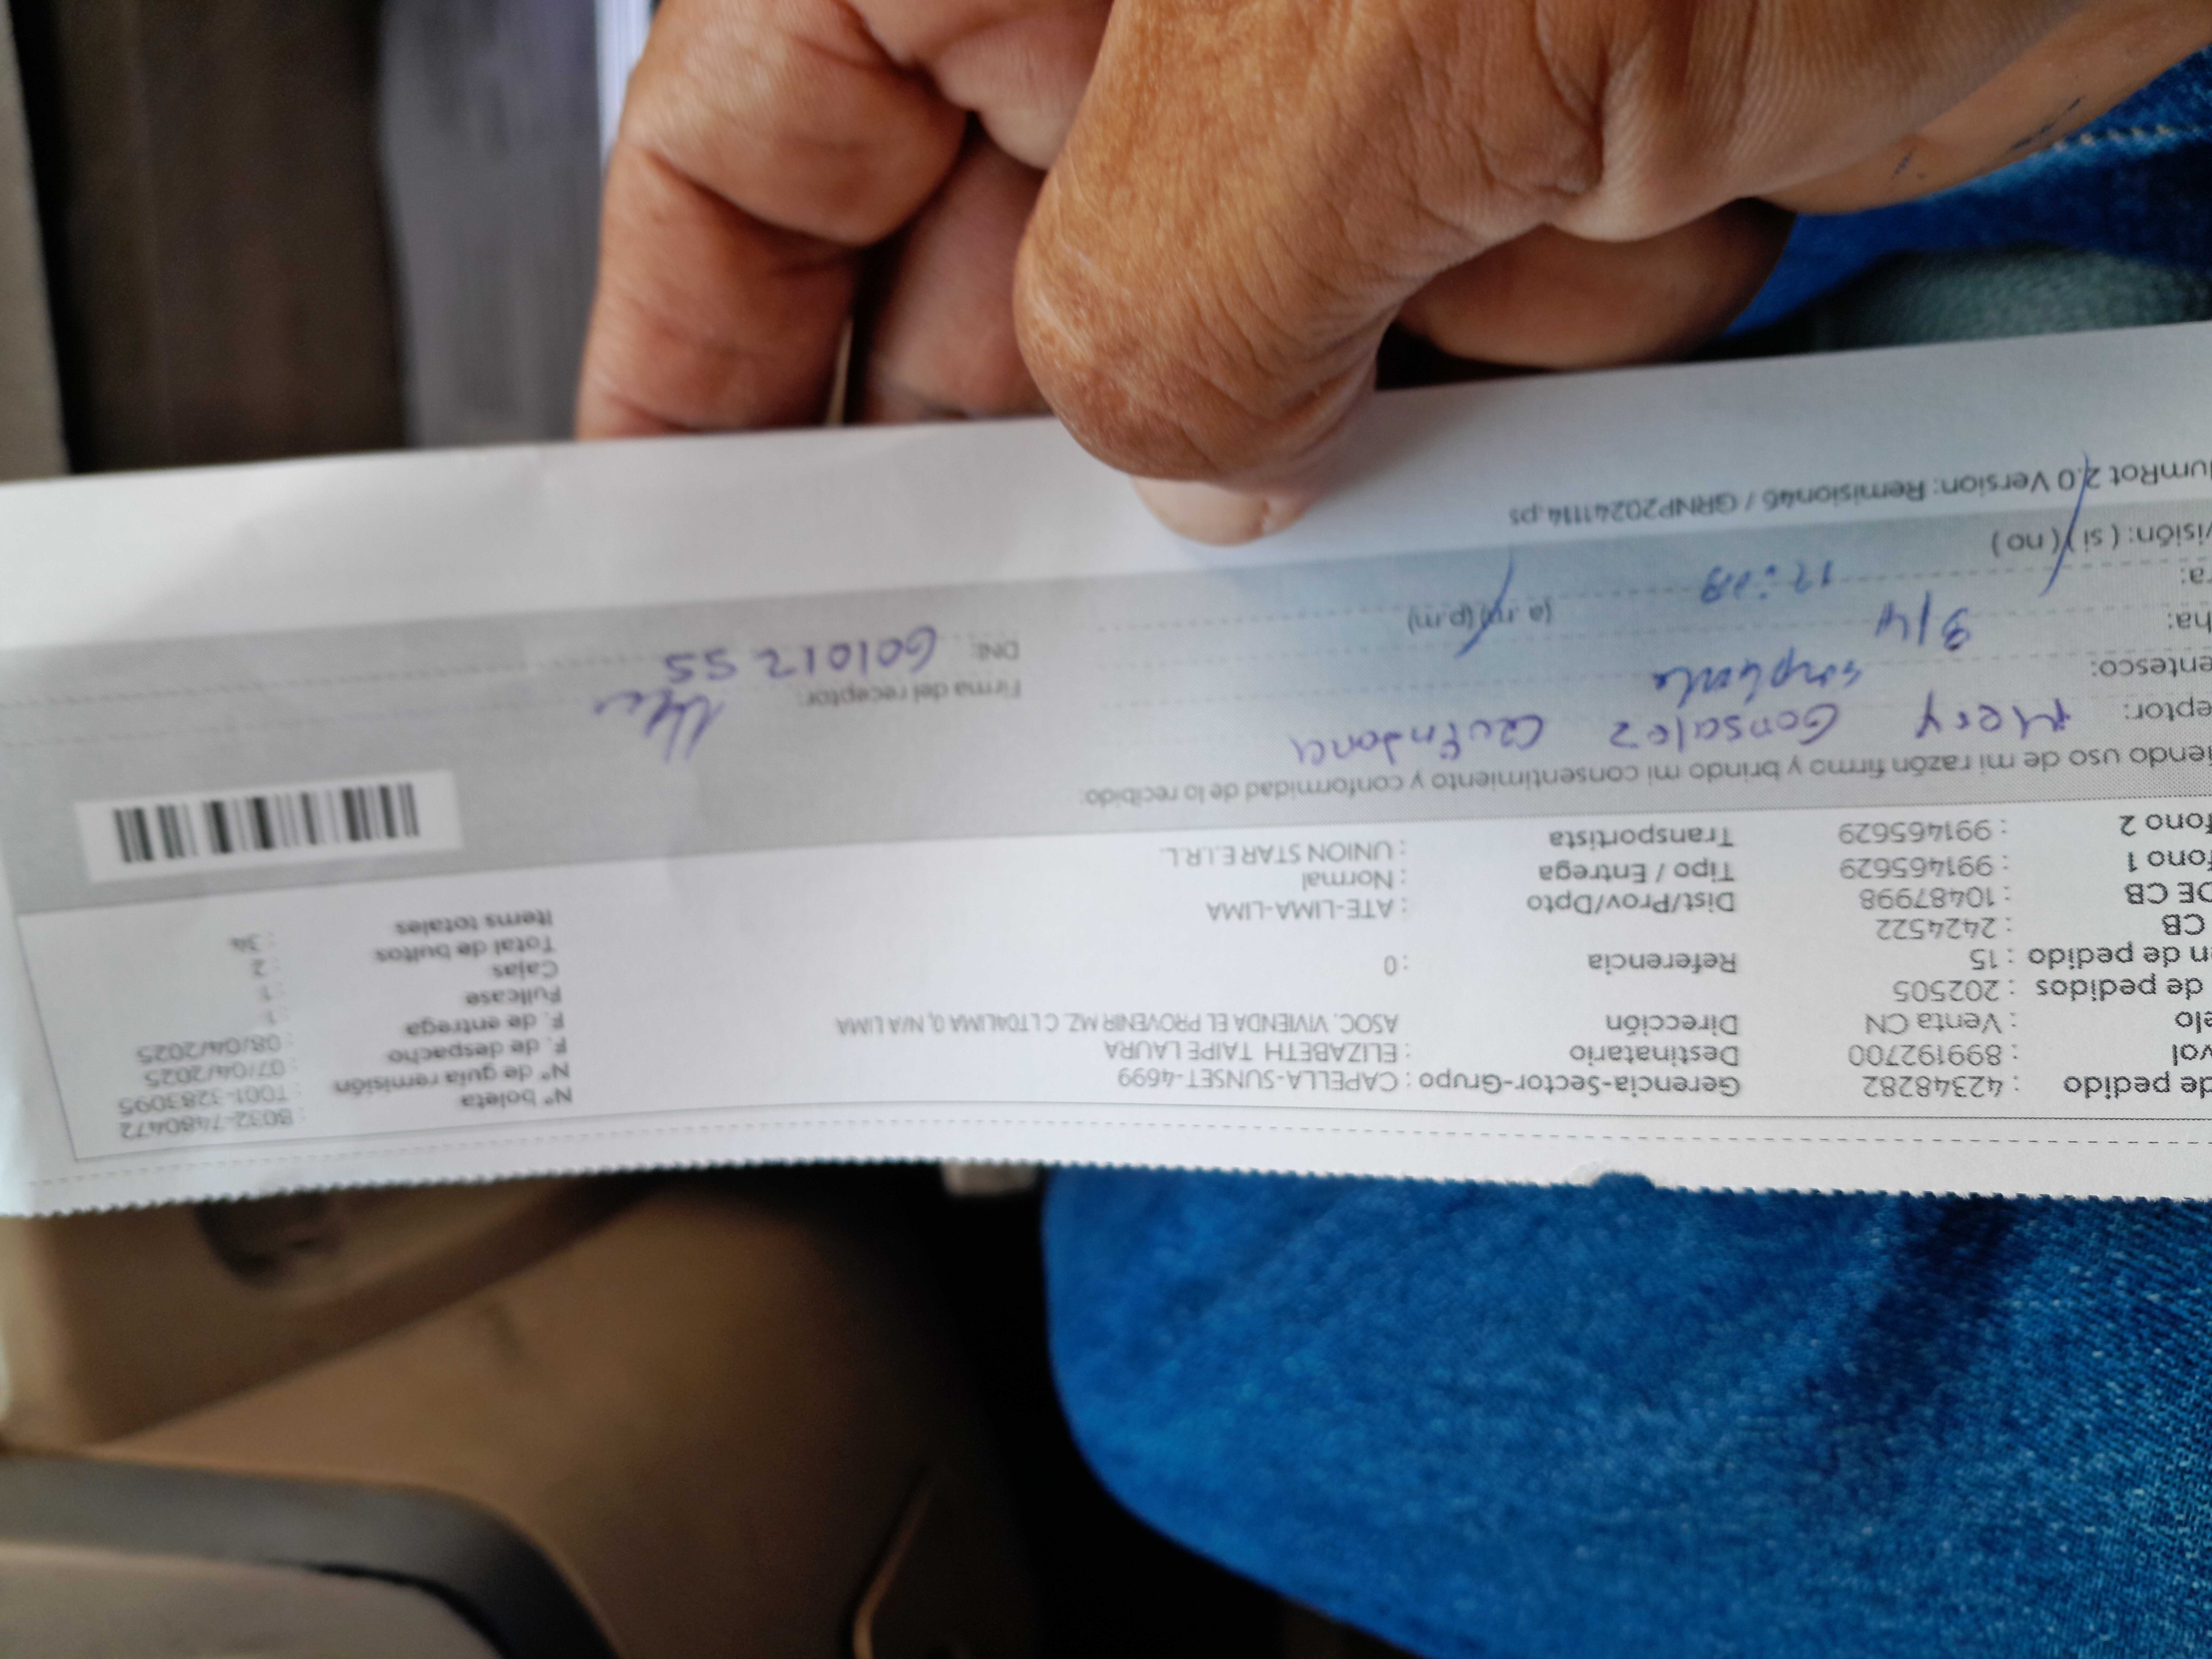 de pedido : 42348282 Gerencia-Sector-Grupo : CAPELLA-SUNSET-4699 N° boleta : B032-7480472
val : 899192700 Destinatario : ELIZABETH TAIPE LAURA N° de guía remisión : T001-3283095
elo : Venta CN Dirección ASOC. VIVIENDA EL PROVENIR MZ. C LT04LIMA 0, N/A LIMA F. de despacho : 07/04/2025
de pedidos : 202505 F. de entrega : 08/04/2025
n de pedido : 15 Referencia : 0 Fullcase : 1
CB : 2424522 Cajas : 1
DE CB : 10487998 Dist/Prov/Dpto : ATE-LIMA-LIMA Total de bultos : 2
fono 1 : 991465629 Tipo / Entrega : Normal Items totales : 34
fono 2 : 991465629 Transportista : UNION STAR E.I.R.L.
iendo uso de mi razón firmo y brindo mi consentimiento y conformidad de lo recibido:
eptor: Mery Gonsalez Firma del receptor:
entesco: DNI:
ha: (a.m) (p.m)
ra:
visión: ( si ) ( no )
umRot 2.0 Version: Remision46 / GRNP20241114.ps